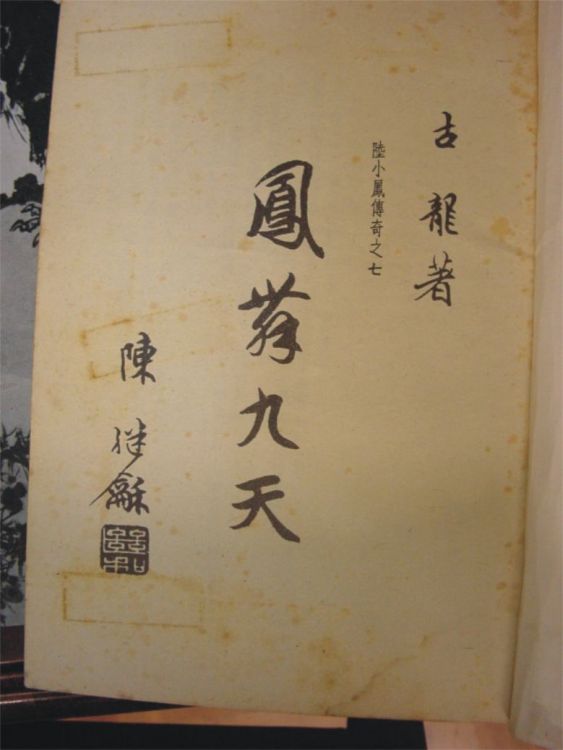 古龍著
陸小鳳傳奇之七
鳳舞九天
陳
龢